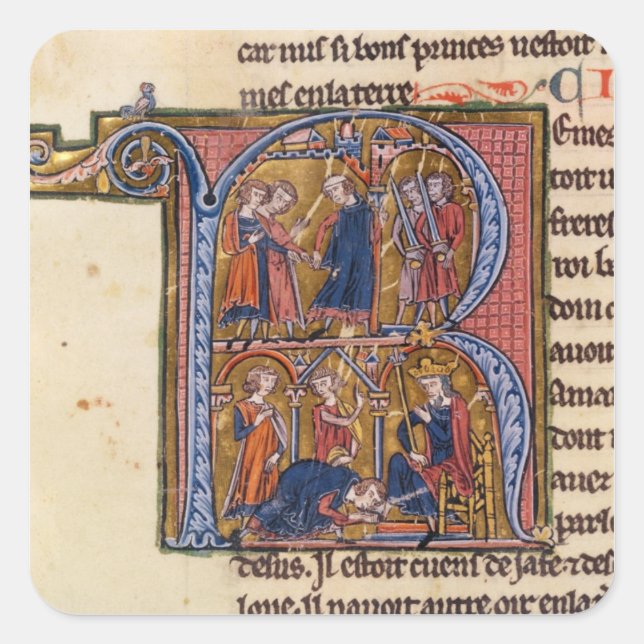 car nuis si bons princes nestoit
mes en la terre CI
R
emes
toit u
freres
roi b
dom
auoit
Amau
dont
auer
parl
desus. Il estoit cuens de Jafe. & des
lone. Il nauoit autre oir en la